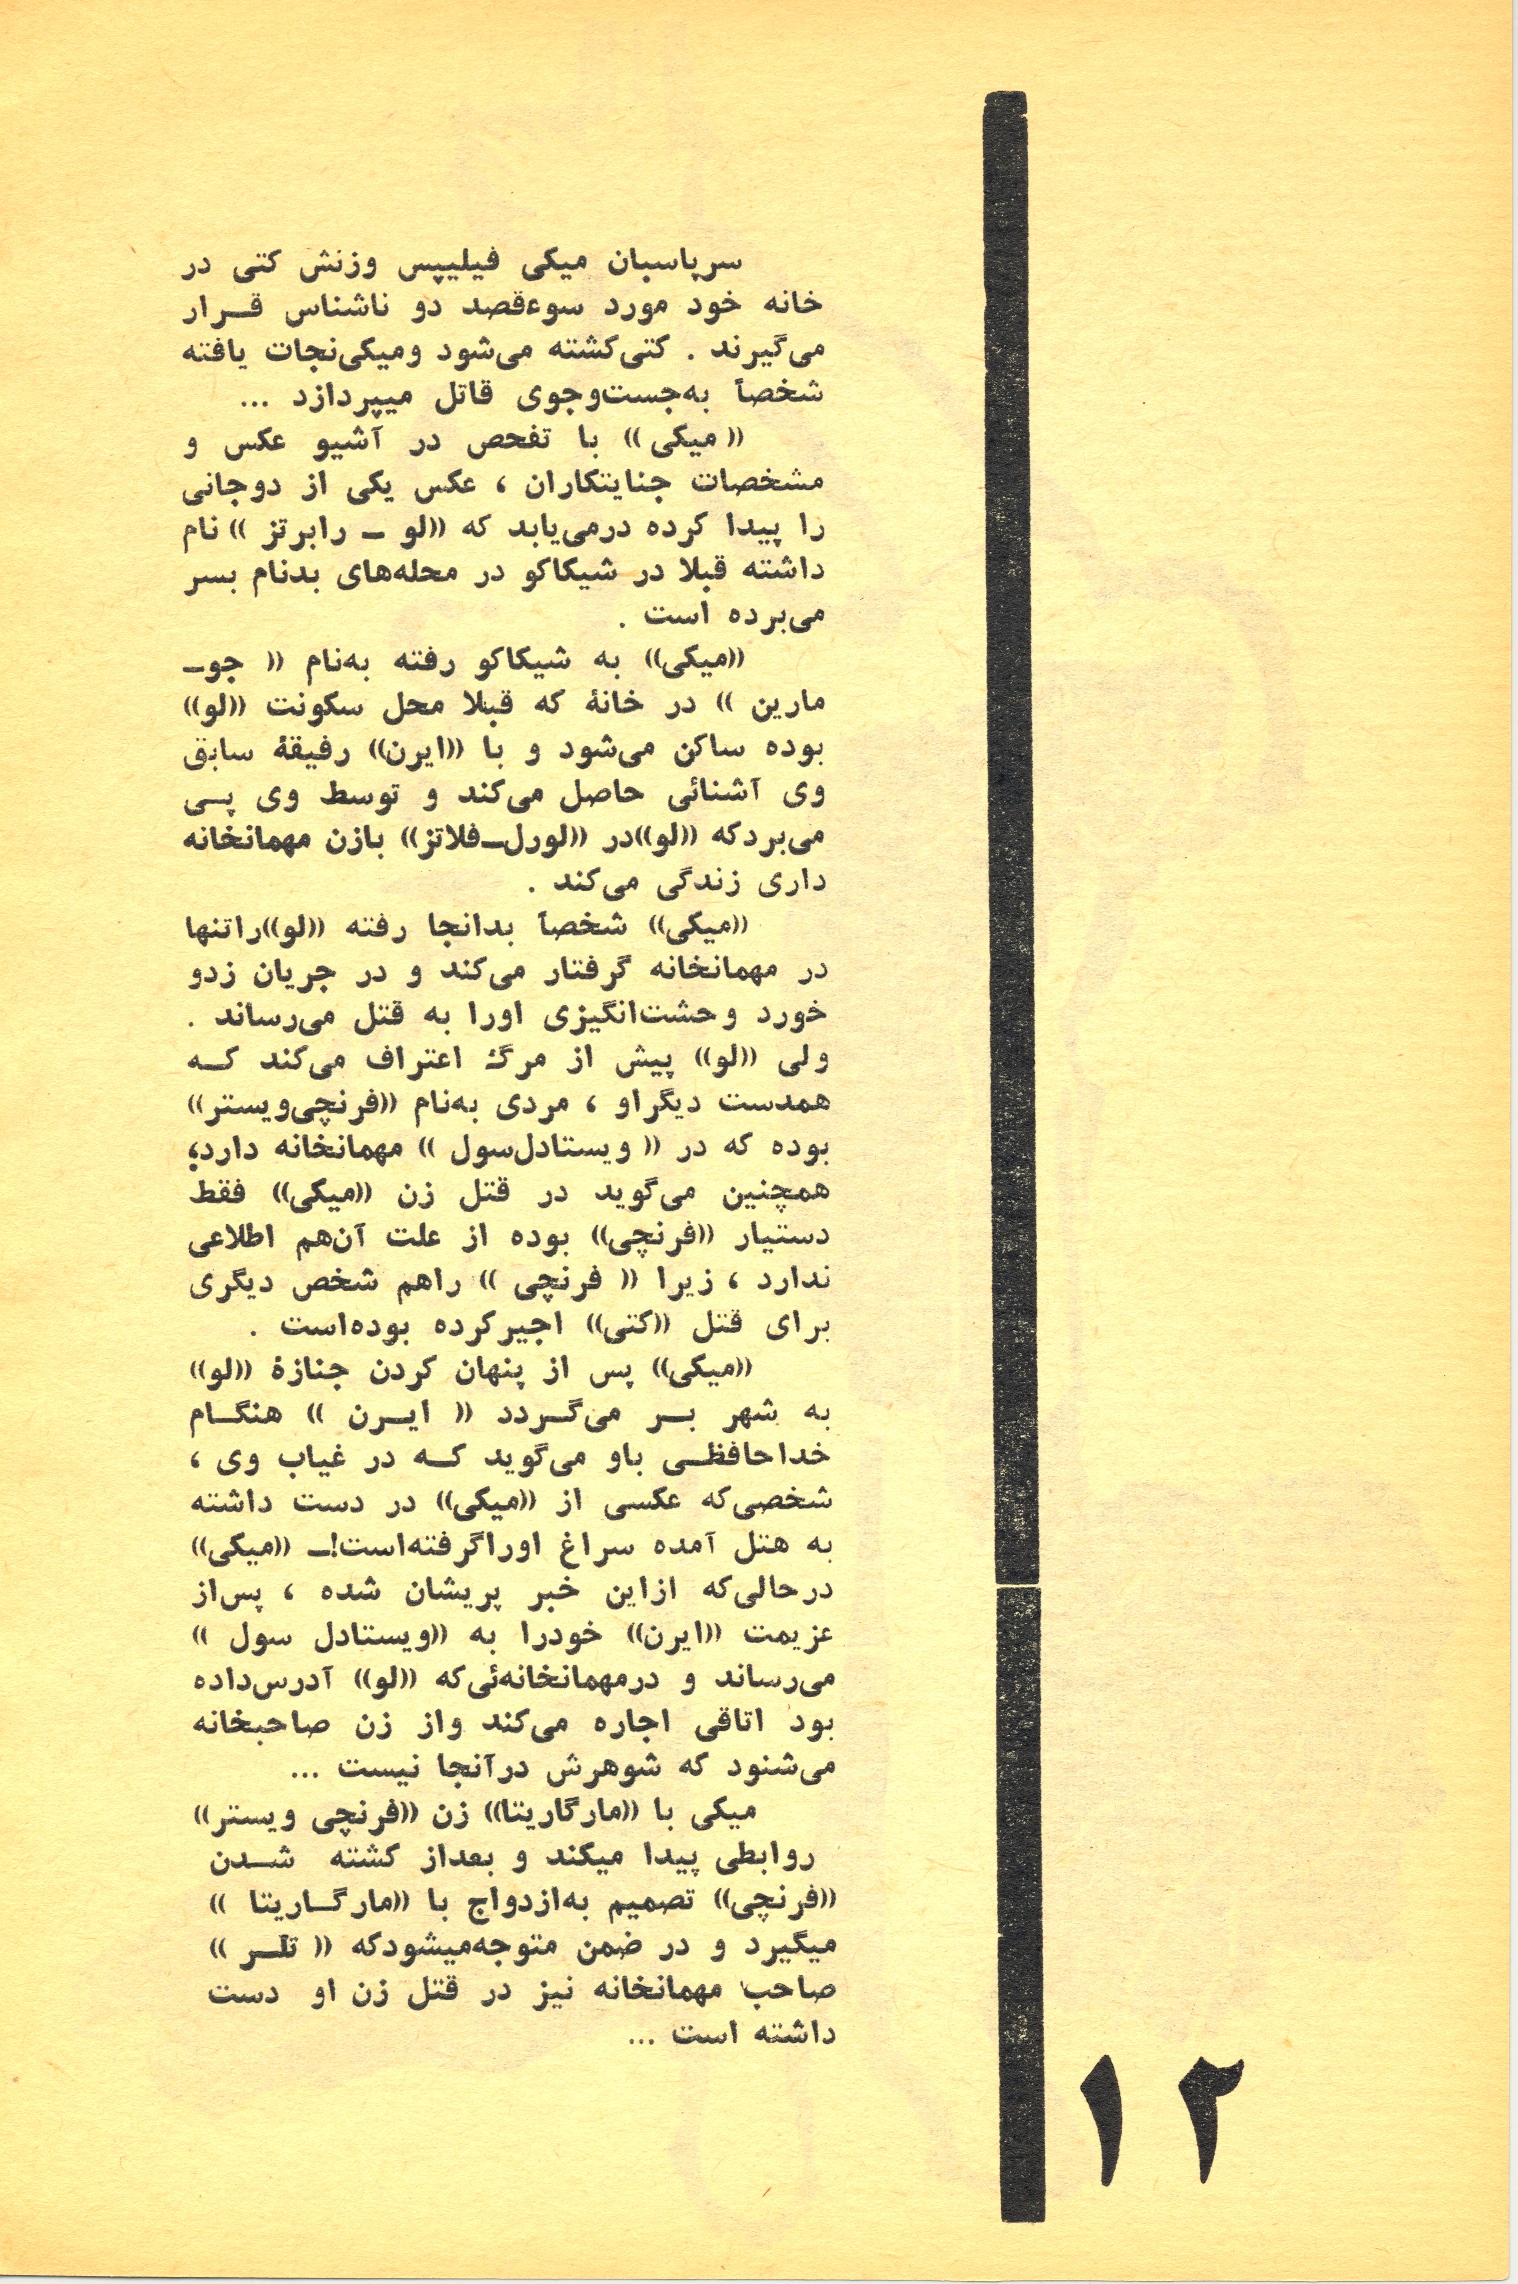 سرپاسبان میکی فیلیپس وزنش کتی در
خانه خود مورد سوءقصد دو ناشناس قرار
می‌گیرند . کتی‌کشته می‌شود ومیکی‌نجات یافته
شخصاً به‌جست‌وجوی قاتل میپردازد ...
((میکی)) با تفحص در آشیو عکس و
مشخصات جنایتکاران ، عکس یکی از دوجانی
را پیدا کرده درمی‌یابد که ((لو ـ رابرتز )) نام
داشته قبلا در شیکاکو در محله‌های بدنام بسر
می‌برده است .
((میکی)) به شیکاکو رفته به‌نام (( جوـ
مارین )) در خانهٔ که قبلا محل سکونت ((لو))
بوده ساکن می‌شود و با ((ایرن)) رفیقهٔ سابق
وی آشنائی حاصل می‌کند و توسط وی پی
می‌بردکه ((لو))در ((لورل‌ـ‌فلاتز)) بازن مهمانخانه
داری زندگی می‌کند .
((میکی)) شخصاً بدانجا رفته ((لو))راتنها
در مهمانخانه گرفتار می‌کند و در جریان زدو
خورد وحشت‌انگیزی اورا به قتل می‌رساند .
ولی ((لو)) پیش از مرگ اعتراف می‌کند که
همدست دیگراو ، مردی به‌نام ((فرنچی‌ویستر))
بوده که در (( ویستادل‌سول )) مهمانخانه دارد؛
همچنین می‌گوید در قتل زن ((میکی)) فقط
دستیار ((فرنچی)) بوده از علت آن‌هم اطلاعی
ندارد ، زیرا (( فرنچی )) راهم شخص دیگری
برای قتل ((کتی)) اجیرکرده بوده‌است .
((میکی)) پس از پنهان کردن جنازهٔ ((لو))
به شهر بر می‌گردد (( ایرن )) هنگام
خداحافظی باو می‌گوید که در غیاب وی ،
شخصی‌که عکسی از ((میکی)) در دست داشته
به هتل آمده سراغ اوراگرفته‌است!ـ ((میکی))
درحالی‌که ازاین خبر پریشان شده ، پس‌از
عزیمت ((ایرن)) خودرا به ((ویستادل سول ))
می‌رساند و درمهمانخانه‌ئی‌که ((لو)) آدرس‌داده
بود اتاقی اجاره می‌کند واز زن صاحبخانه
می‌شنود که شوهرش درآنجا نیست ...
میکی با ((مارگاریتا)) زن ((فرنچی ویستر))
روابطی پیدا میکند و بعداز کشته شدن
((فرنچی)) تصمیم به‌ازدواج با ((مارگاریتا ))
میگیرد و در ضمن متوجه‌میشودکه (( تلر ))
صاحب مهمانخانه نیز در قتل زن او دست
داشته است ...
۱۲